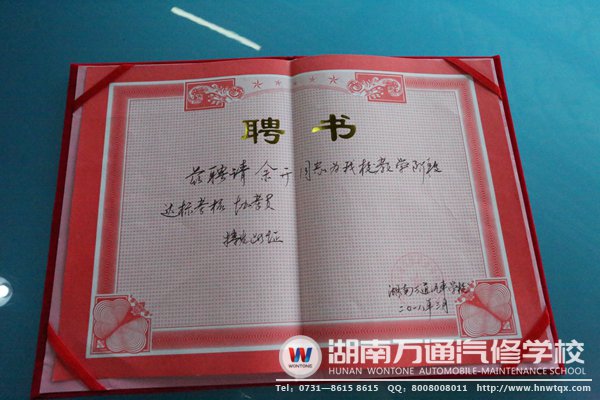 聘 书
兹聘请 余于 同志为我校教学阶段
达标考核 协考员
特发此证
湖南万通汽车学校
二〇一八年三月
WONTONE
湖南万通汽修学校
HUNAN WONTONE AUTOMOBILE-MAINTENANCE SCHOOL
Tel：0731—8615 8615 QQ：8008008011 http://www.hnwtqx.com